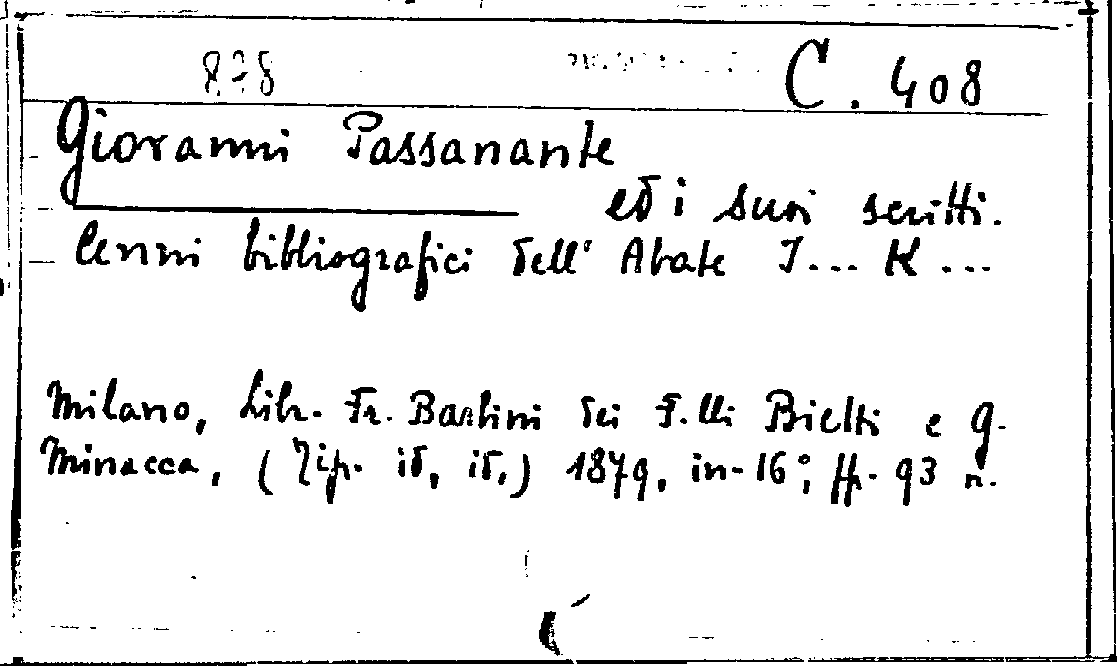 878 C. 408
Giovanni Passanante
ed i suoi scritti.
Cenni bibliografici dell' Abate J... K...
Milano, Libr. Fr. Barbini dei F.lli Bietti e G.
Minacca, (Tip. id, id,) 1879, in-16°; pp. 93 n.